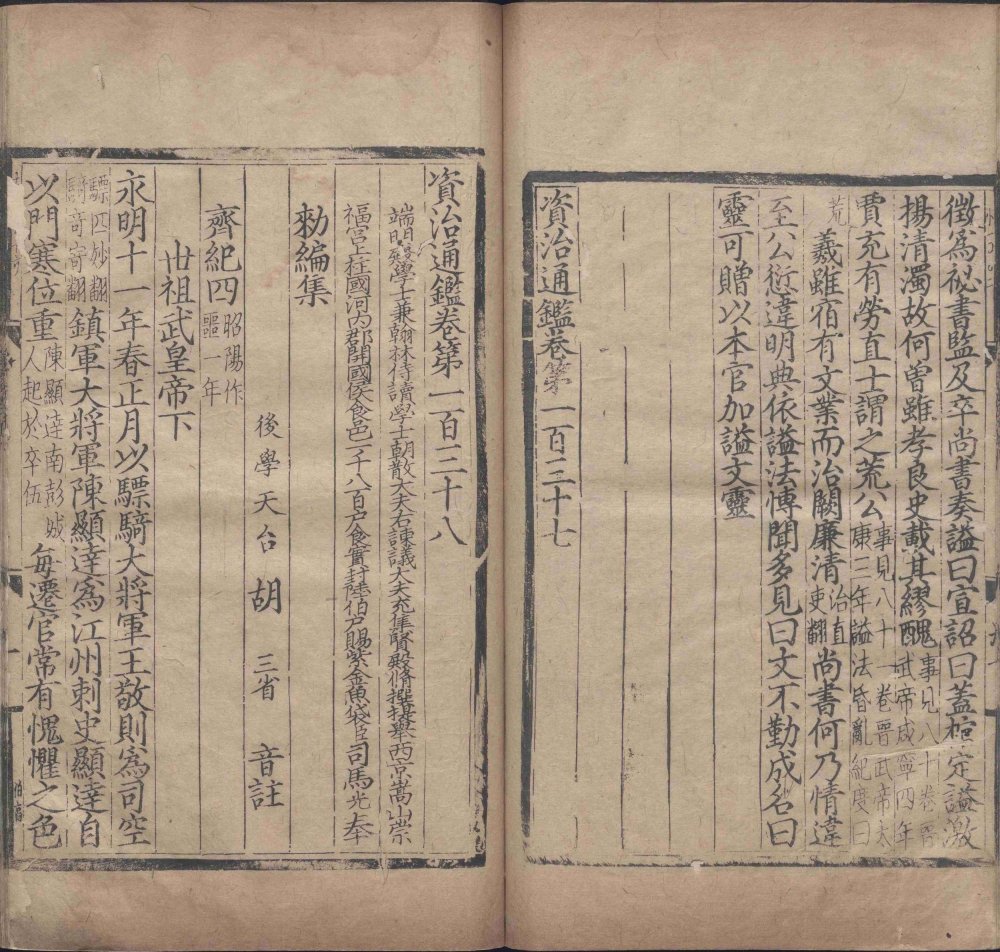 徵爲祕書監及卒尚書奏謚曰宣詔曰蓋棺定謚激
揚清濁故何曾雖孝良史載其繆醜事見八十卷晉武帝咸寧四年
賈充有勞直士謂之荒公事見八十一卷晉武帝太康三年謚法昏亂紀度曰
荒羲雖宿有文業而治闕廉清治直吏翻尚書何乃情違
至公愆違明典依謚法愽聞多見曰文不勤成名曰
靈可贈以本官加謚文靈
資治通鑑卷第一百三十七
資治通鑑卷第一百三十八
端明殿學士兼翰林侍讀學士朝散大夫右諫議大夫充集賢殿脩撰提舉西京嵩山崇
福宮上柱國河內郡開國侯食邑一千八百户食實封陸伯户賜紫金魚袋臣司馬光奉
勑編集
後學天台胡三省音註
齊紀四昭陽作噩一年
世祖武皇帝下
永明十一年春正月以驃騎大將軍王敬則爲司空
驃匹妙翻騎奇寄翻鎮軍大將軍陳顯達爲江州刺史顯達自
以門寒位重陳顯達南彭城人起於卒伍每遷官常有愧懼之色